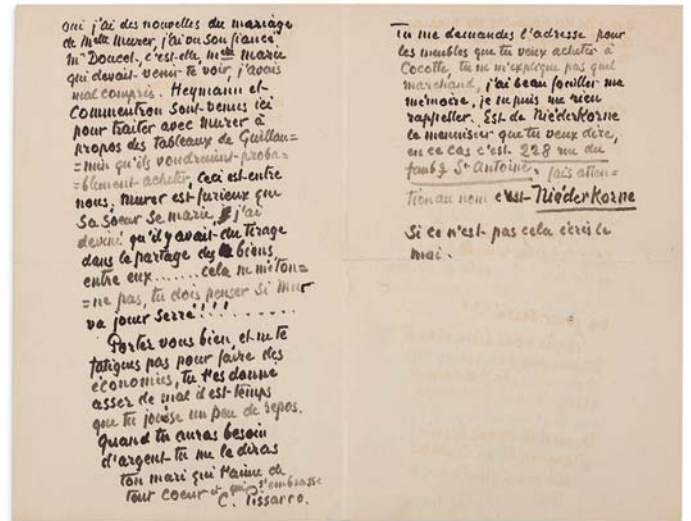 oui j'ai des nouvelles du mariage
de Melle Murer, j'ai vu son fiancé
Mr Doucet, c'est elle, Melle marie
qui devait venir te voir, j'avais
mal compris. Heymann et
Commentron sont venus ici
pour traiter avec Murer à
propos des tableaux de Guillau=
=min qu'ils voudraient proba=
=blement acheter, Ceci est entre
nous, Murer est furieux que
sa soeur se marie, j'ai
deviné qu'il y avait du tirage
dans le partage des biens
entre eux....... cela ne m'éton=
=ne pas, tu dois penser si Mur
va jouer serré!!!.......
Portez vous bien, et ne te
fatigues pas pour faire des
économies, tu t'es donné
assez de mal il est temps
que tu jouisse un peu de repos.
quand tu auras besoin
d'argent tu me le diras
ton mari qui t'aime de
tout coeur et qui t'embrasse
C. Pissarro.
Tu me demandes l'adresse pour
les meubles que tu veux acheter à
Cocotte, tu ne m'explique pas quel
marchand, j'ai beau fouiller ma
mémoire, je ne puis me rien
rappeller. Est-ce Niederkorne
le menuisier que tu veux dire,
en ce cas c'est 228 rue du
faubg St Antoine, fais atten=
tion au nom c'est Niederkorne
Si ce n'est pas cela écris le
moi.